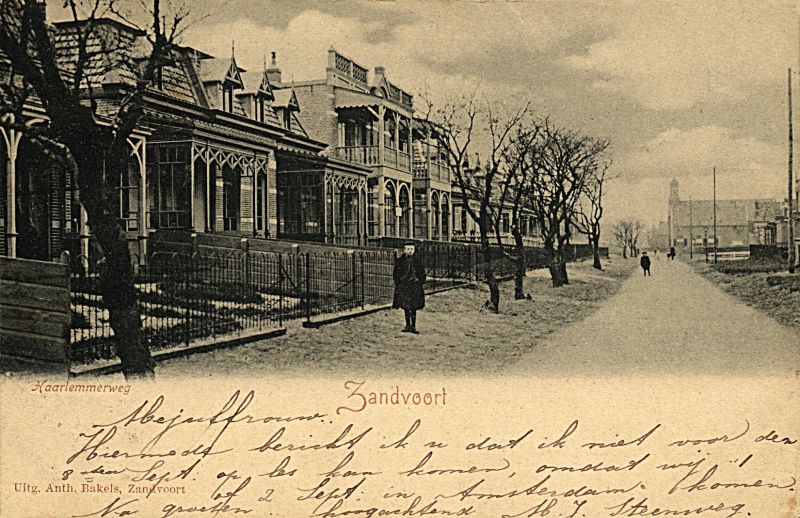 Haarlemmerweg
Zandvoort
Mejuffrouw.
Hiermede bericht ik u dat ik niet voor den
8sten Sept. op les kan komen, omdat wij 1
Uitg. Anth. Bakels, Zandvoort
of 2 Sept. in Amsterdam komen.
Na groeten hoogachtend M. J. Steenweg.